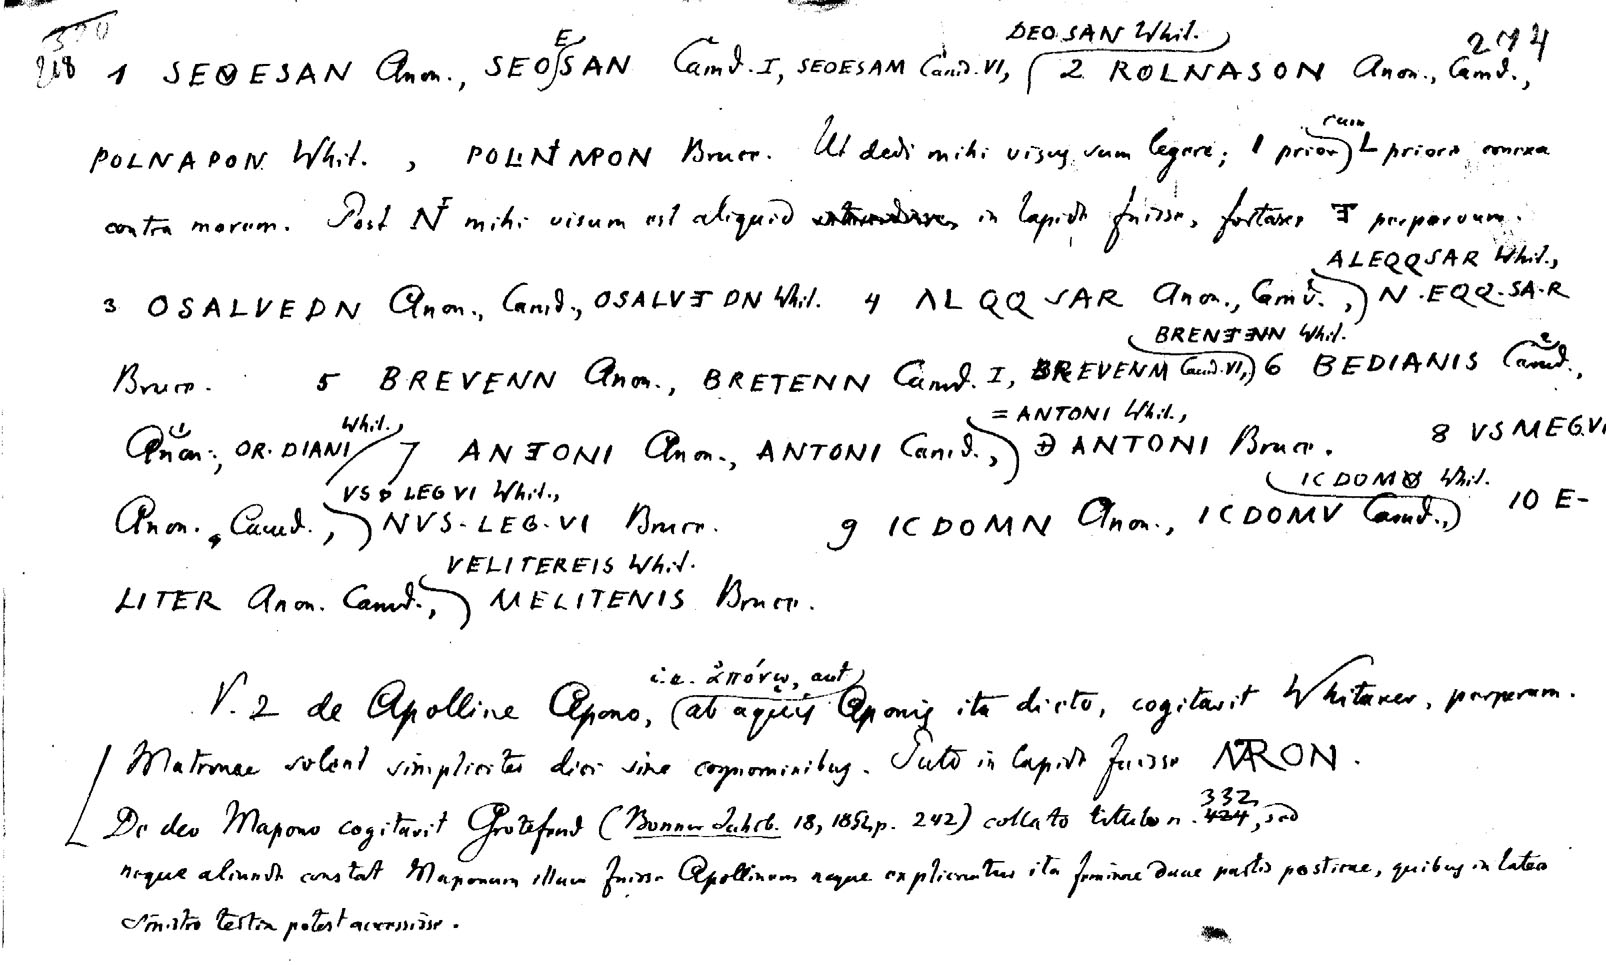 370
218
274
DEO SAN Whit.
E
1 SEOESAN Anon., SEOSAN Camd. I, SEOESAM Camd. VI, 2 ROLNASON Anon., Camd.,
rum
POLNAPON Whit., POLINAPON Bruce. Ut dedi mihi visus sum legere; I prior L priori conexa
contra morem. Post N mihi visum est aliquid in lapide fuisse, fortasse perparvum.
ALEQQSAR Whit.,
3 OSALVEDN Anon., Camd., OSALVEDN Whit. 4 ALQQSAR Anon., Camd., N.EQQ.SA.R
BRENENN Whit.
Bruce. 5 BREVENN Anon., BRETENN Camd. I, BREVENM Camd. VI, 6 BEDIANIS Camd.,
Whit., = ANTONI Whit.,
Anon., OR. DIANI 7 ANTONI Anon., ANTONI Camd., ANTONI Bruce. 8 VSMEG.VI
VS LEG VI Whit., ICDOMO Whit.
Anon., Camd., NVS-LEG-VI Bruce. 9 ICDOMN Anon., ICDOMV Camd., 10 E-
VELITEREIS Whit.
LITER Anon. Camd., MELITENIS Bruce.
i.e. ἀπόνῳ, aut
V. 2 de Apolline Apono, ab aquis Aponis ita dicto, cogitavit Whitaker, perperam.
Matronae solent simpliciter dici sine cognominibus. Puto in lapide fuisse MATRON.
332
De deo Mapono cogitavit Grotefend (Bonner Jahrb. 18, 1852 p. 242) collato titulo n. 424, sed
neque aliunde constat Maponum illum fuisse Apollinem neque explicantur ita feminae duae partis posticae, quibus in latere
sinistro tertia potest accessisse.